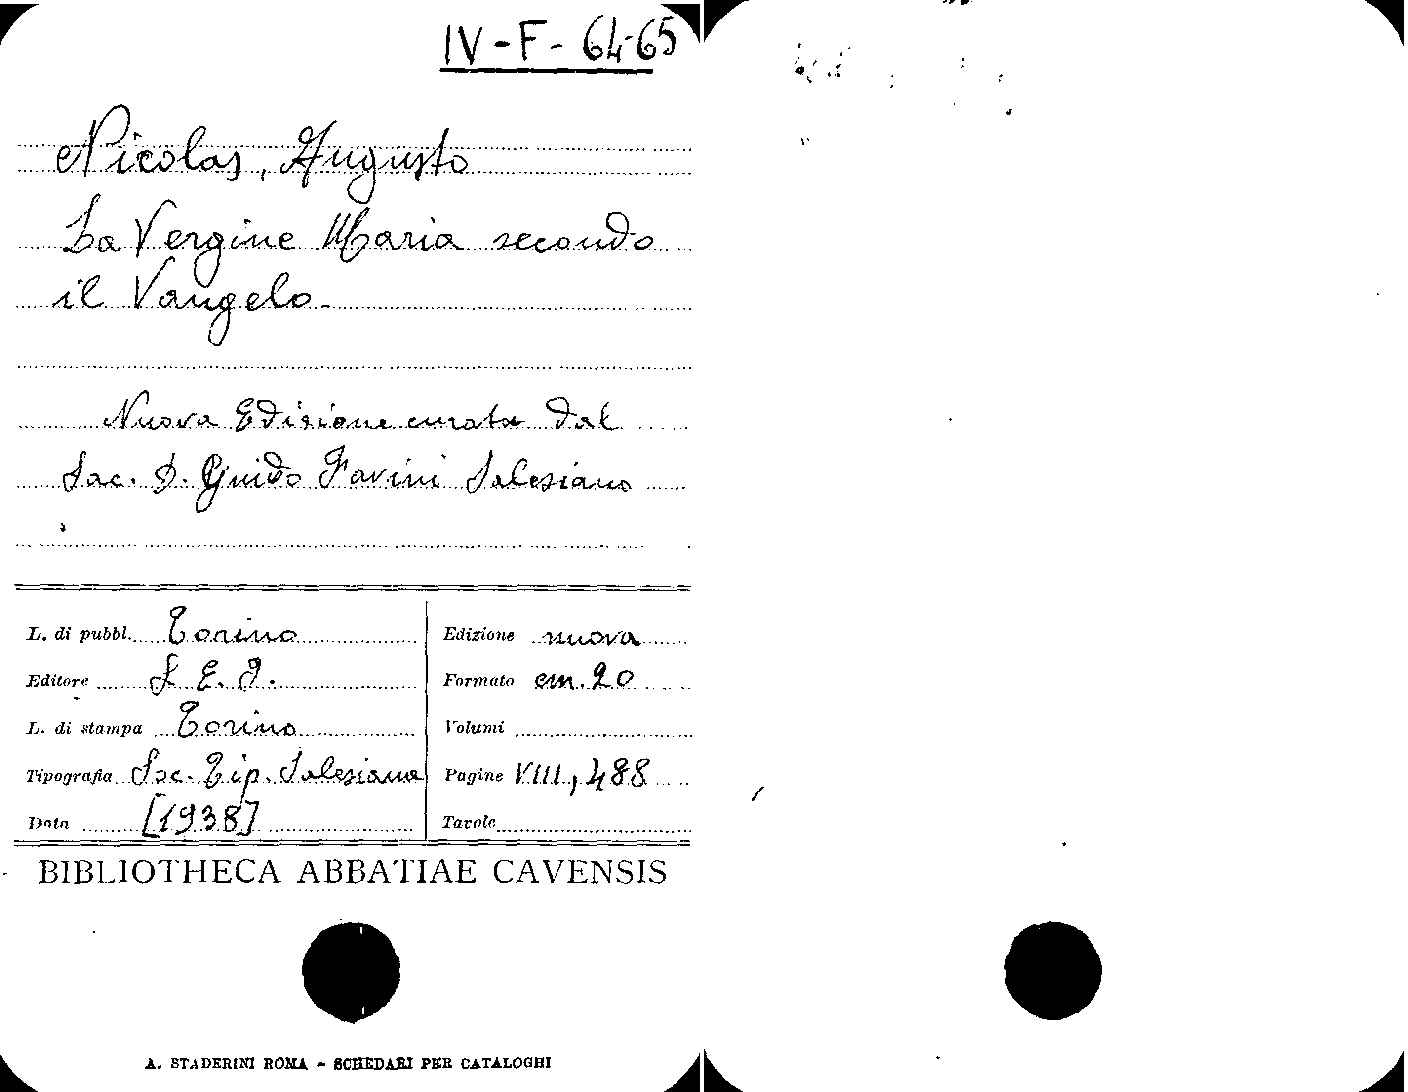 IV-F-64-65
Nicolas, Augusto
La Vergine Maria secondo
il Vangelo-
Nuova Edizione curata dal
Sac. D. Guido Favini Salesiano
L. di pubbl. Torino
Edizione nuova
Editore S. E. I.
Formato cm. 20
L. di stampa Torino
Volumi
Tipografia Soc. Tip. Salesiana
Pagine VIII, 488
Data [1938]
Tavole
BIBLIOTHECA ABBATIAE CAVENSIS
A. STADERINI ROMA - SCHEDARI PER CATALOGHI